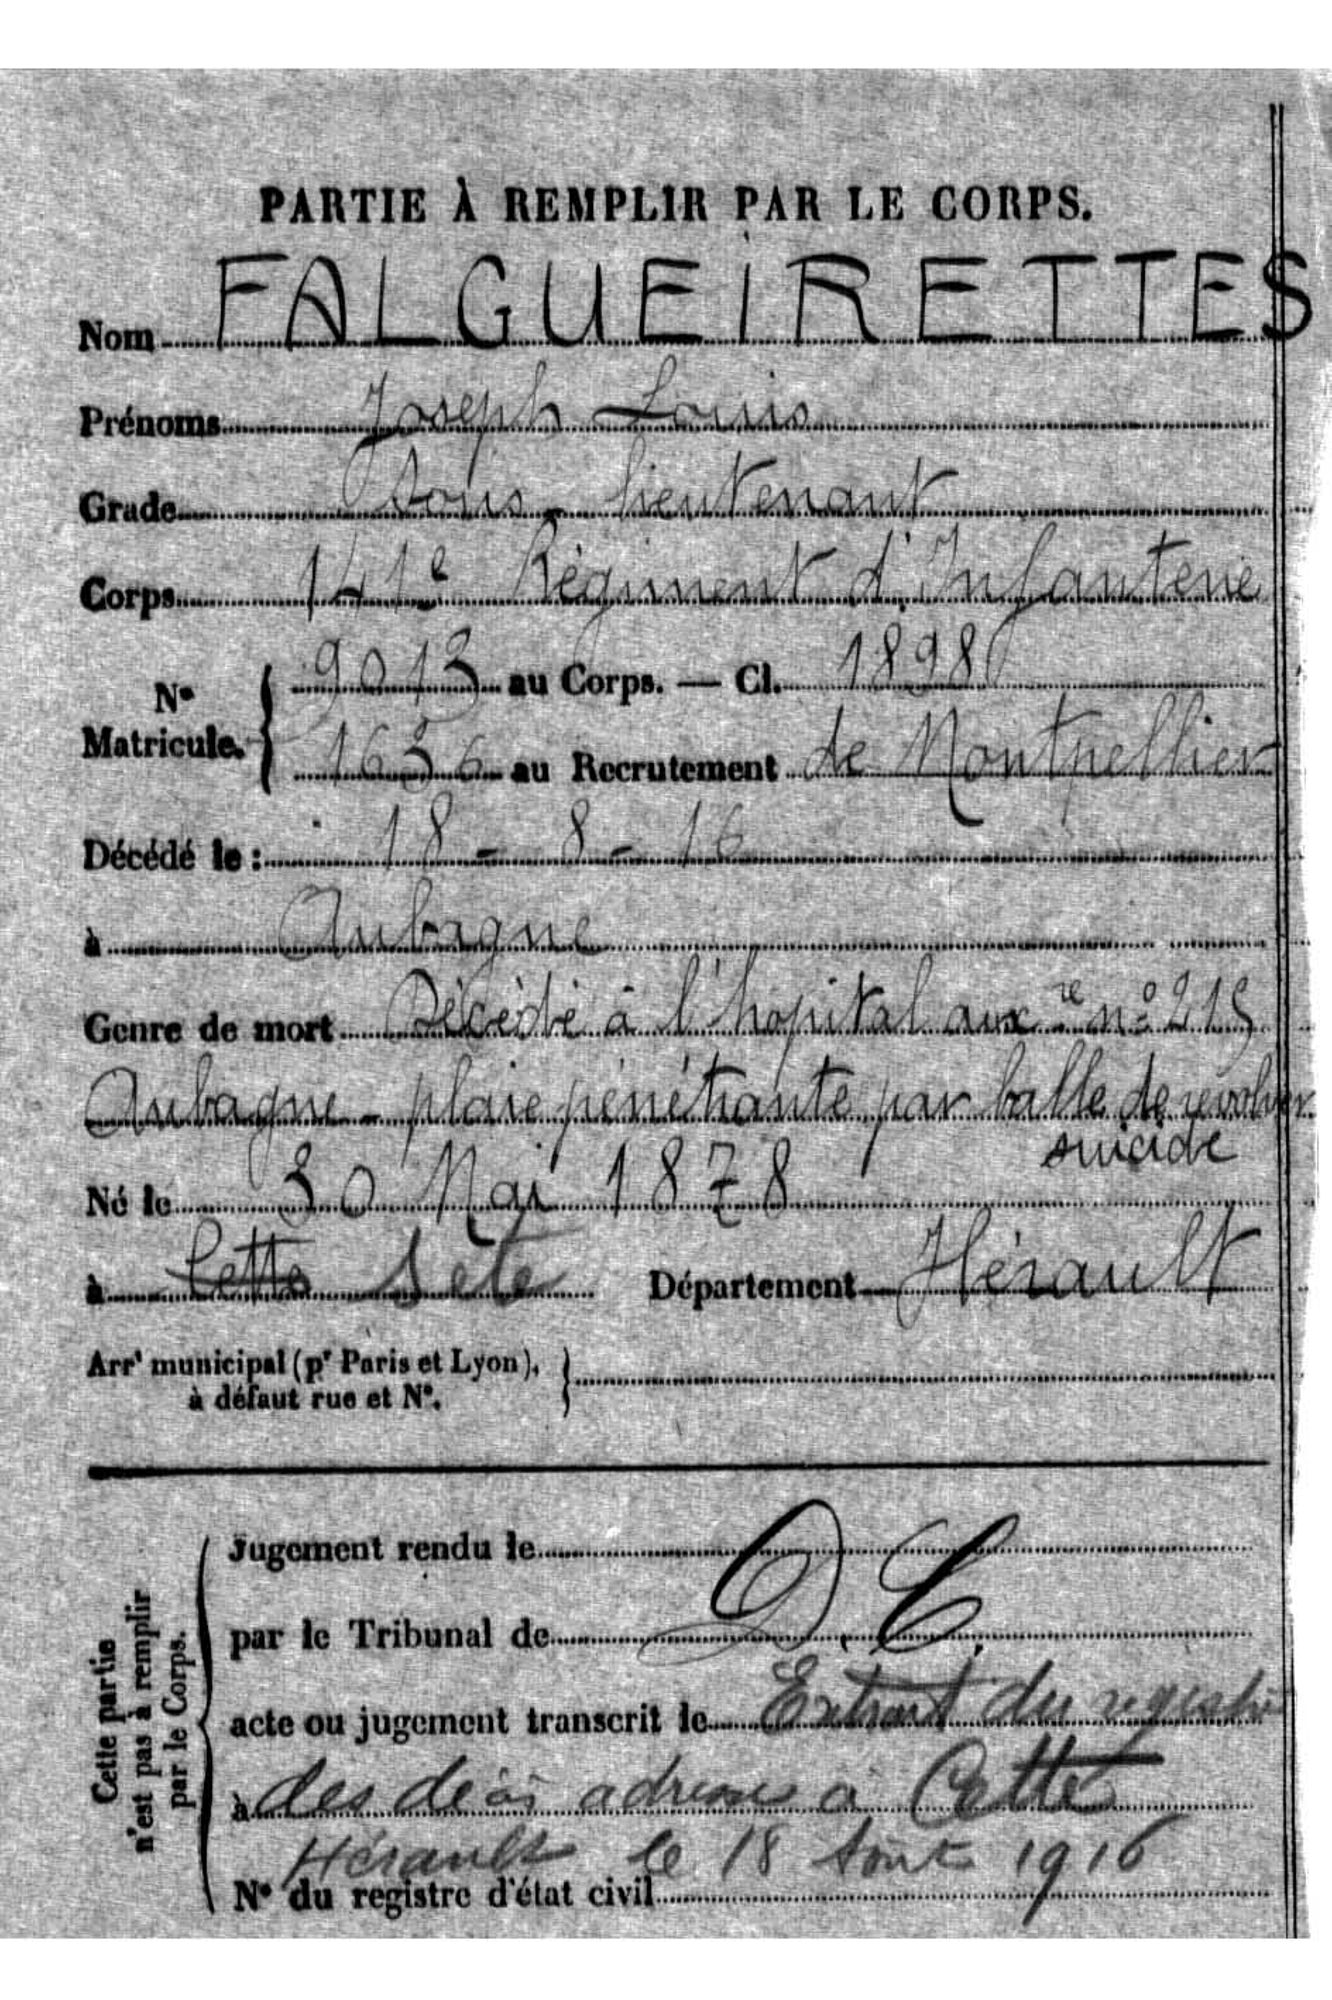 PARTIE À REMPLIR PAR LE CORPS.
Nom FALGUEIRETTES
Prénoms Joseph Louis
Grade Sous-lieutenant
Corps 141e Régiment d'Infanterie
N° Matricule. { 9013 au Corps. — Cl. 1898
1636 au Recrutement de Montpellier
Décédé le : 18 - 8 - 16
à Aubagne
Genre de mort Décédé à l'hôpital auxre n° 215
Aubagne - plaie pénétrante par balle de revolver
suicide
Né le 30 Mai 1878
à Cette Sète Département Hérault
Arrt municipal (pr Paris et Lyon), }
à défaut rue et N°.
Cette partie n'est pas à remplir par le Corps.
Jugement rendu le
par le Tribunal de D.C.
acte ou jugement transcrit le Extrait du registre
à des décès adressé à Cette
Hérault le 18 Août 1916
N° du registre d'état civil